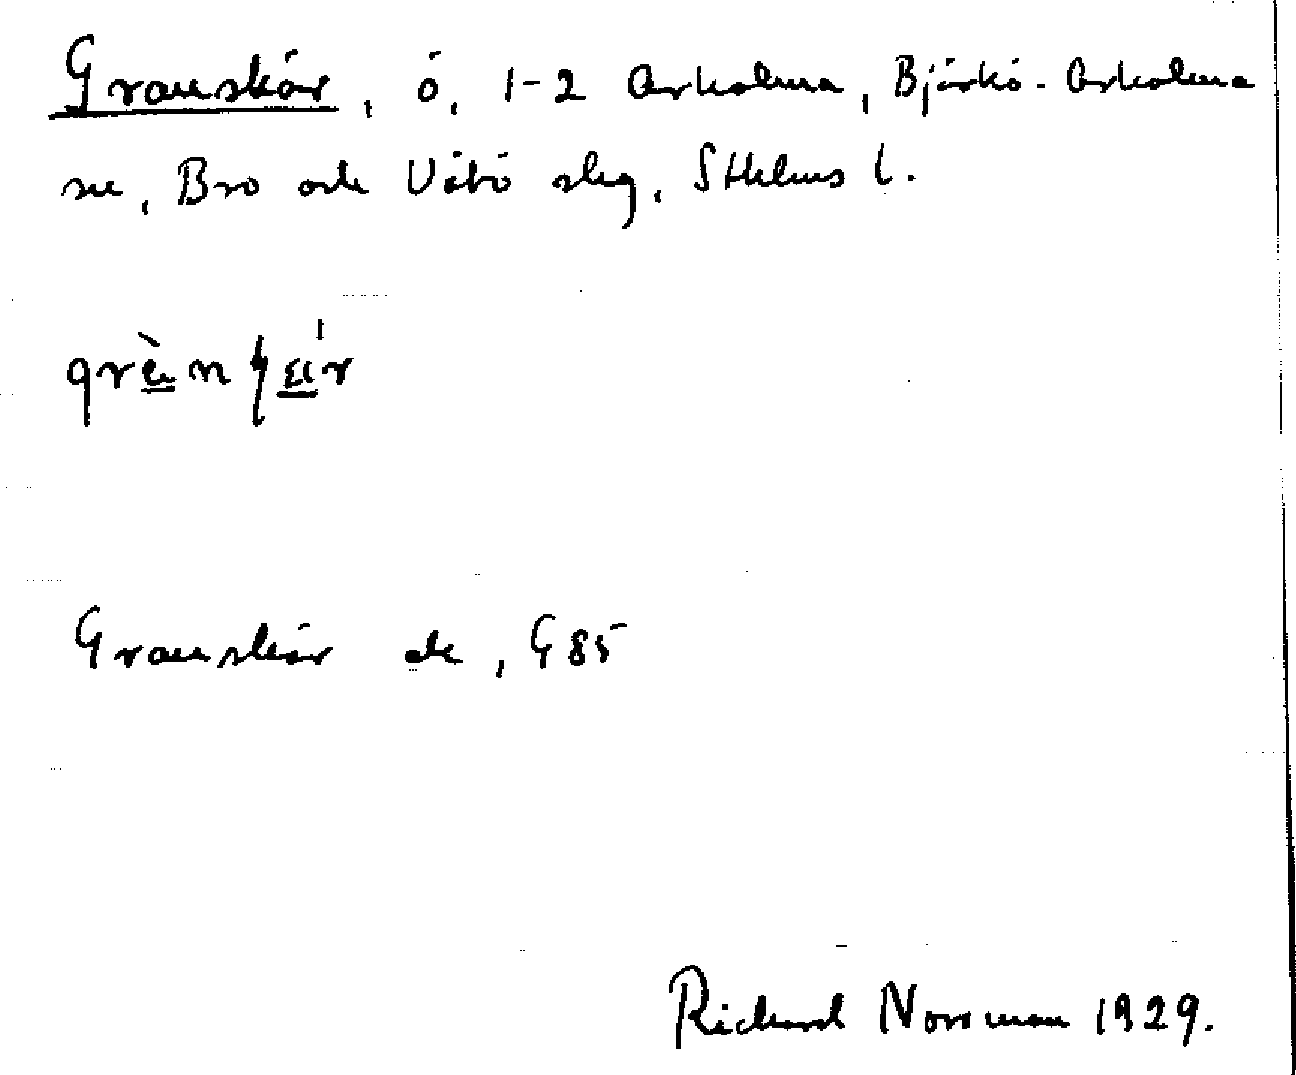 Granskär, ö, 1-2 Arholma, Björkö-Arholma
sn, Bro och Vätö slg, Sthlms l.
Granskär de, G85
Richard Norrman 1929.